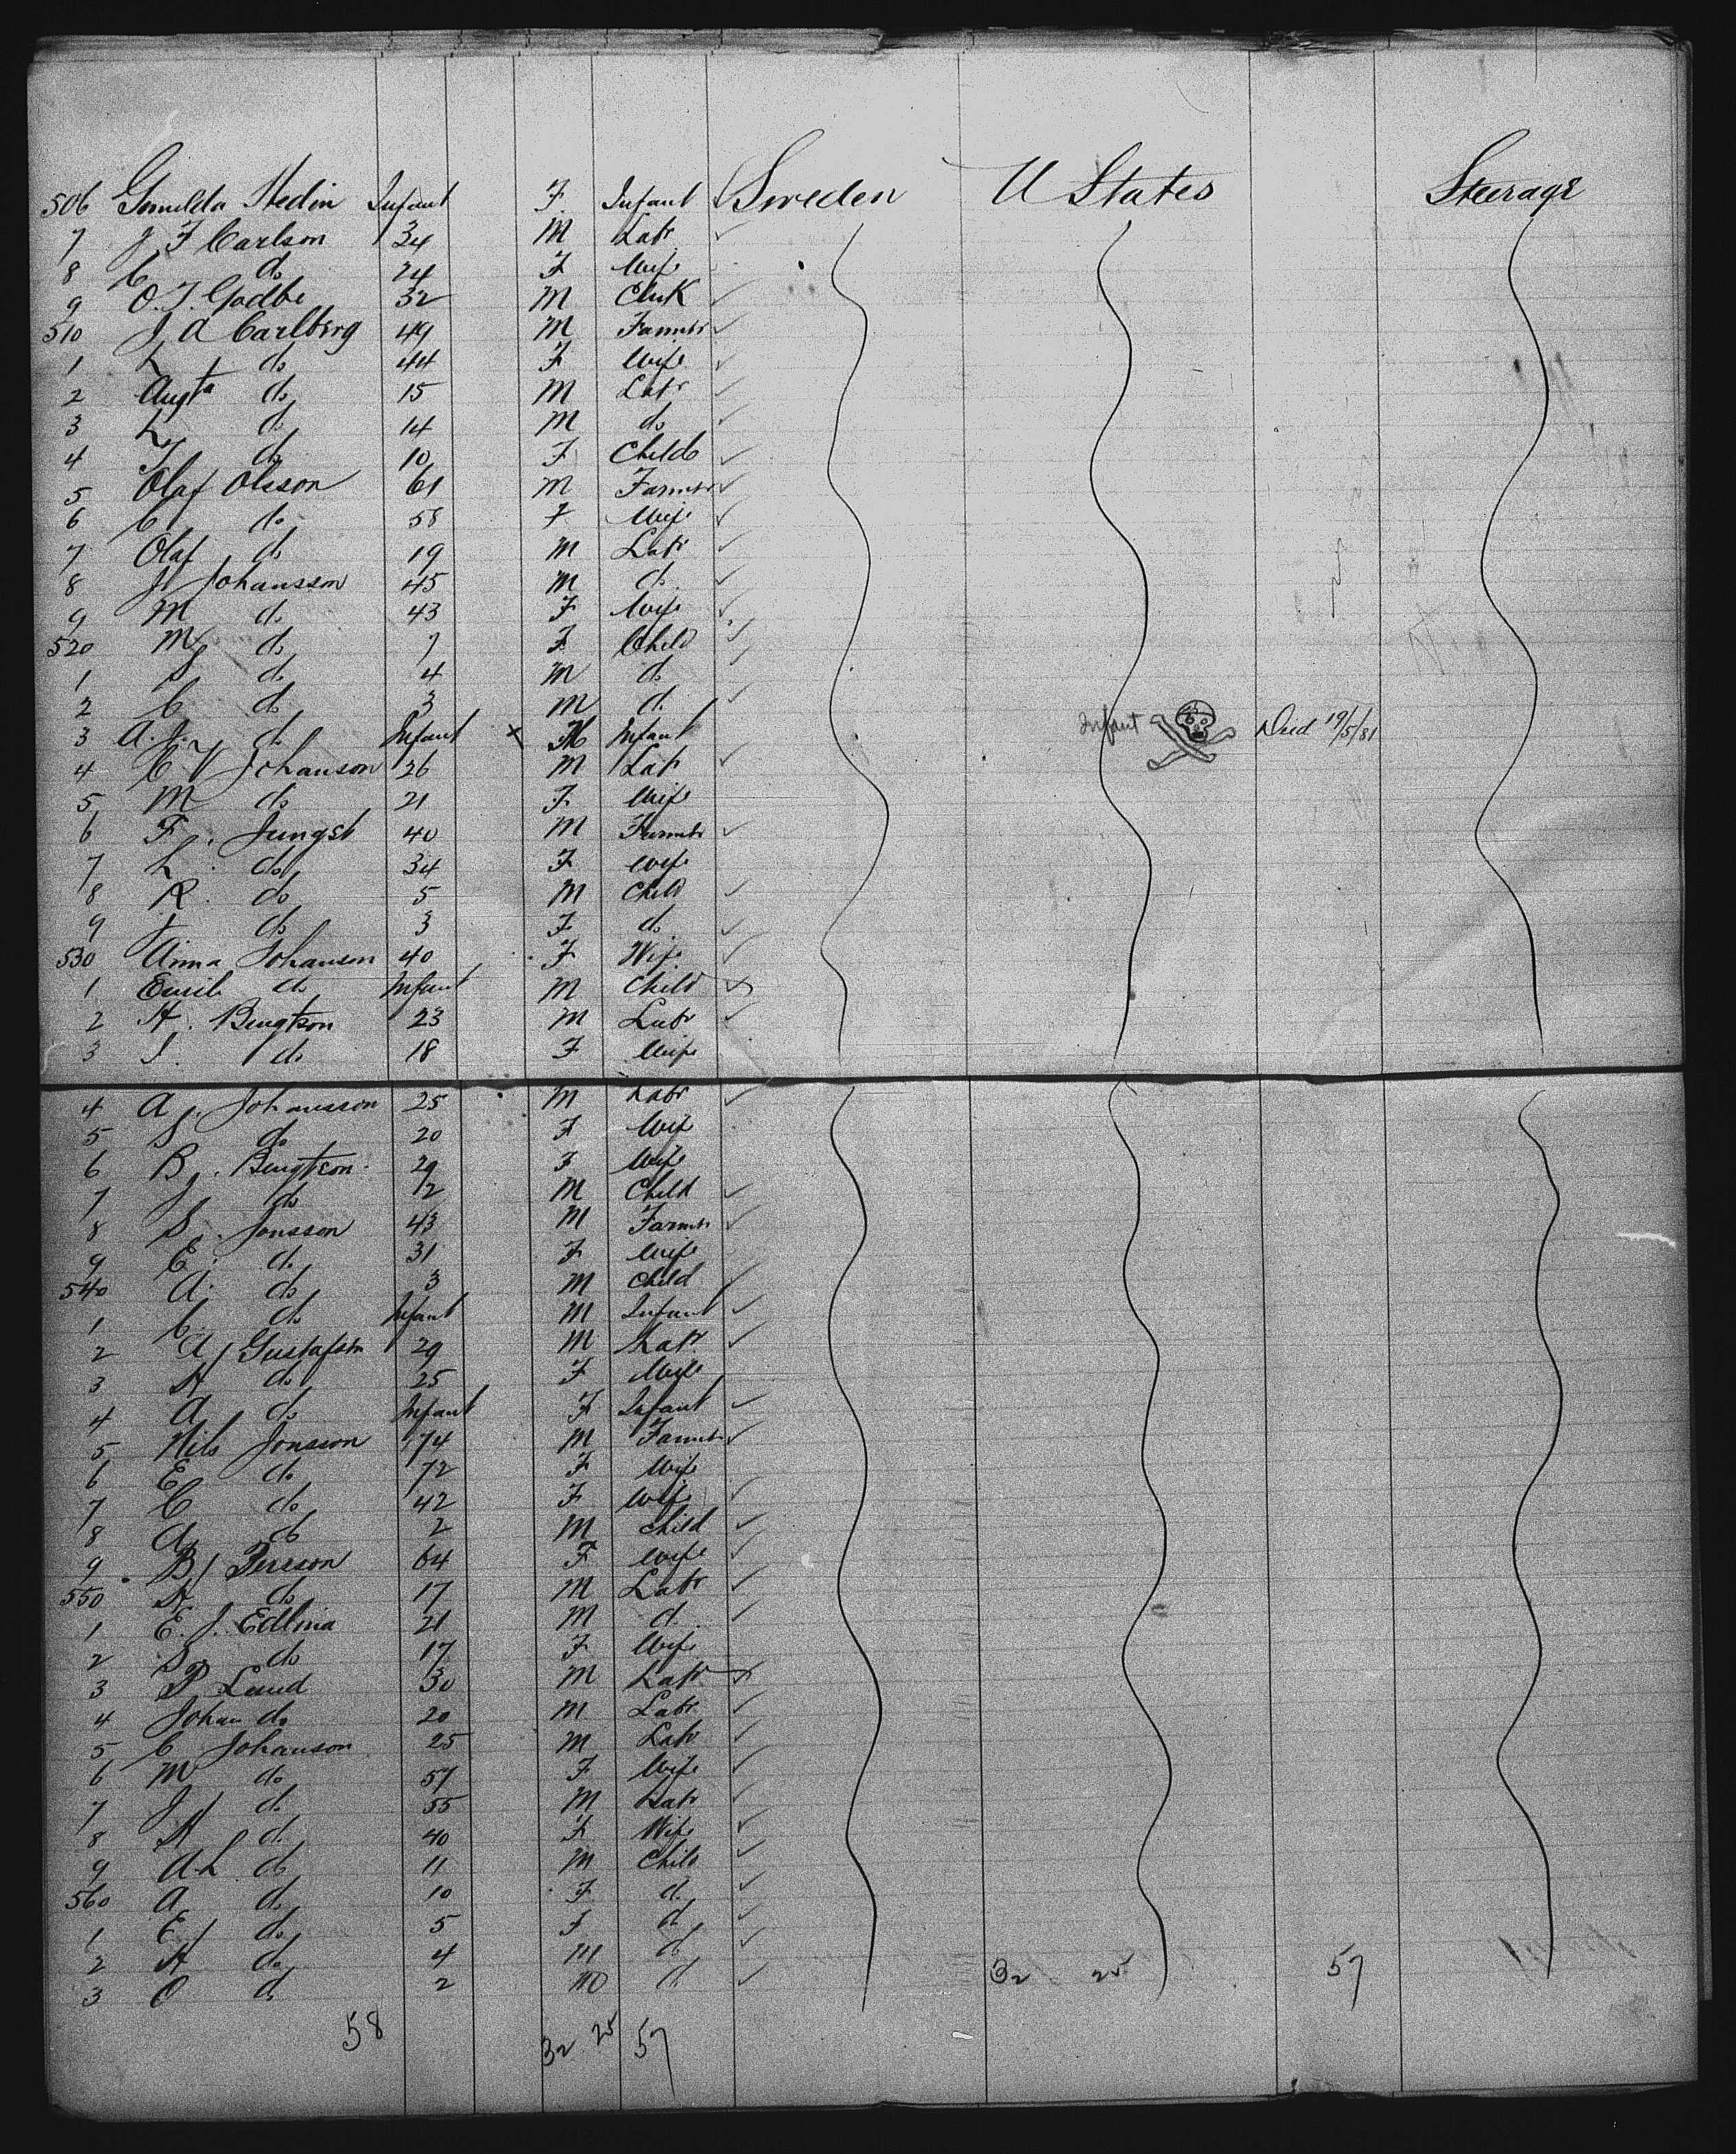 506 Gunilda Hedin Infant F Infant Sweden U States Steerage
7 J F Carlson 34 M Labr
8 C do 24 F Wife
9 O. J. Godbe 32 M Clerk
510 J A Carlberg 49 M Farmer
1 L do 44 F Wife
2 Augta do 15 M Labr
3 L do 14 M do
4 J do 10 F Child
5 Olaf Olsson 61 M Farmer
6 C do 58 F Wife
7 Olaf do 19 M Labr
8 J Johansson 45 M do
9 M do 43 F Wife
520 M do 7 F Child
1 S do 4 M do
2 C do 3 M do
3 A. J. do Infant x M Infant Infant Died 19/5/81
4 C V Johanson 26 M Labr
5 M do 21 F Wife
6 F. Jungst 40 M Farmer
7 L. do 34 F Wife
8 R. do 5 M Child
9 J do 3 F do
530 Anna Johanson 40 F Wife
1 Emil do Infant M Child
2 H. Bengtson 23 M Labr
3 S. do 18 F Wife
4 A. Johansson 25 M Labr
5 S do 20 F Wife
6 B. Bengtson 29 F Wife
7 J do 2 M Child
8 S. Jonsson 43 M Farmer
9 E. do 31 F Wife
540 A. do 3 M Child
1 C. do Infant M Infant
2 A Gustafson 29 M Labr
3 H do 25 F Wife
4 A do Infant F Infant
5 Nils Jonsson 74 M Farmer
6 E do 72 F Wife
7 C do 42 F Wife
8 A do 2 M Child
9 B Persson 64 F Wife
550 A do 17 M Labr
1 E. J. Edlina 21 M do
2 S. do 17 F Wife
3 P Lund 30 M Labr
4 Johan do 20 M Labr
5 C Johanson 25 M Labr
6 M do 57 F Wife
7 J do 55 M Labr
8 A do 40 F Wife
9 A L do 11 M Child
560 A do 10 F do
1 E do 5 F do
2 A do 4 M do
3 O do 2 M do 32 25 57
58 32 25 57